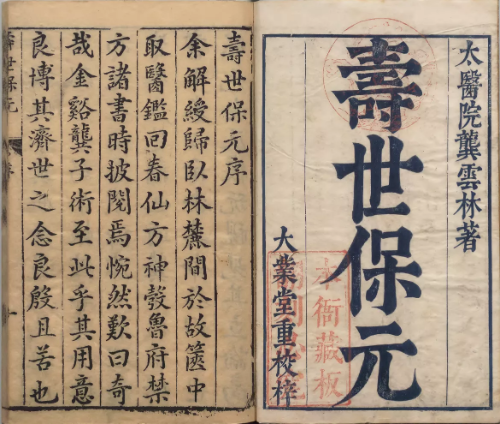 太醫院龔雲林著
壽世保元
大業堂重校梓
本衙藏板
壽世保元序
余解綬歸臥林麓間於故篋中
取醫鑑回春仙方神彀魯府禁
方諸書時披閱焉惋然歎曰奇
哉金谿龔子術至此乎其用意
良博其濟世之念良殷且苦也
壽世保元
序